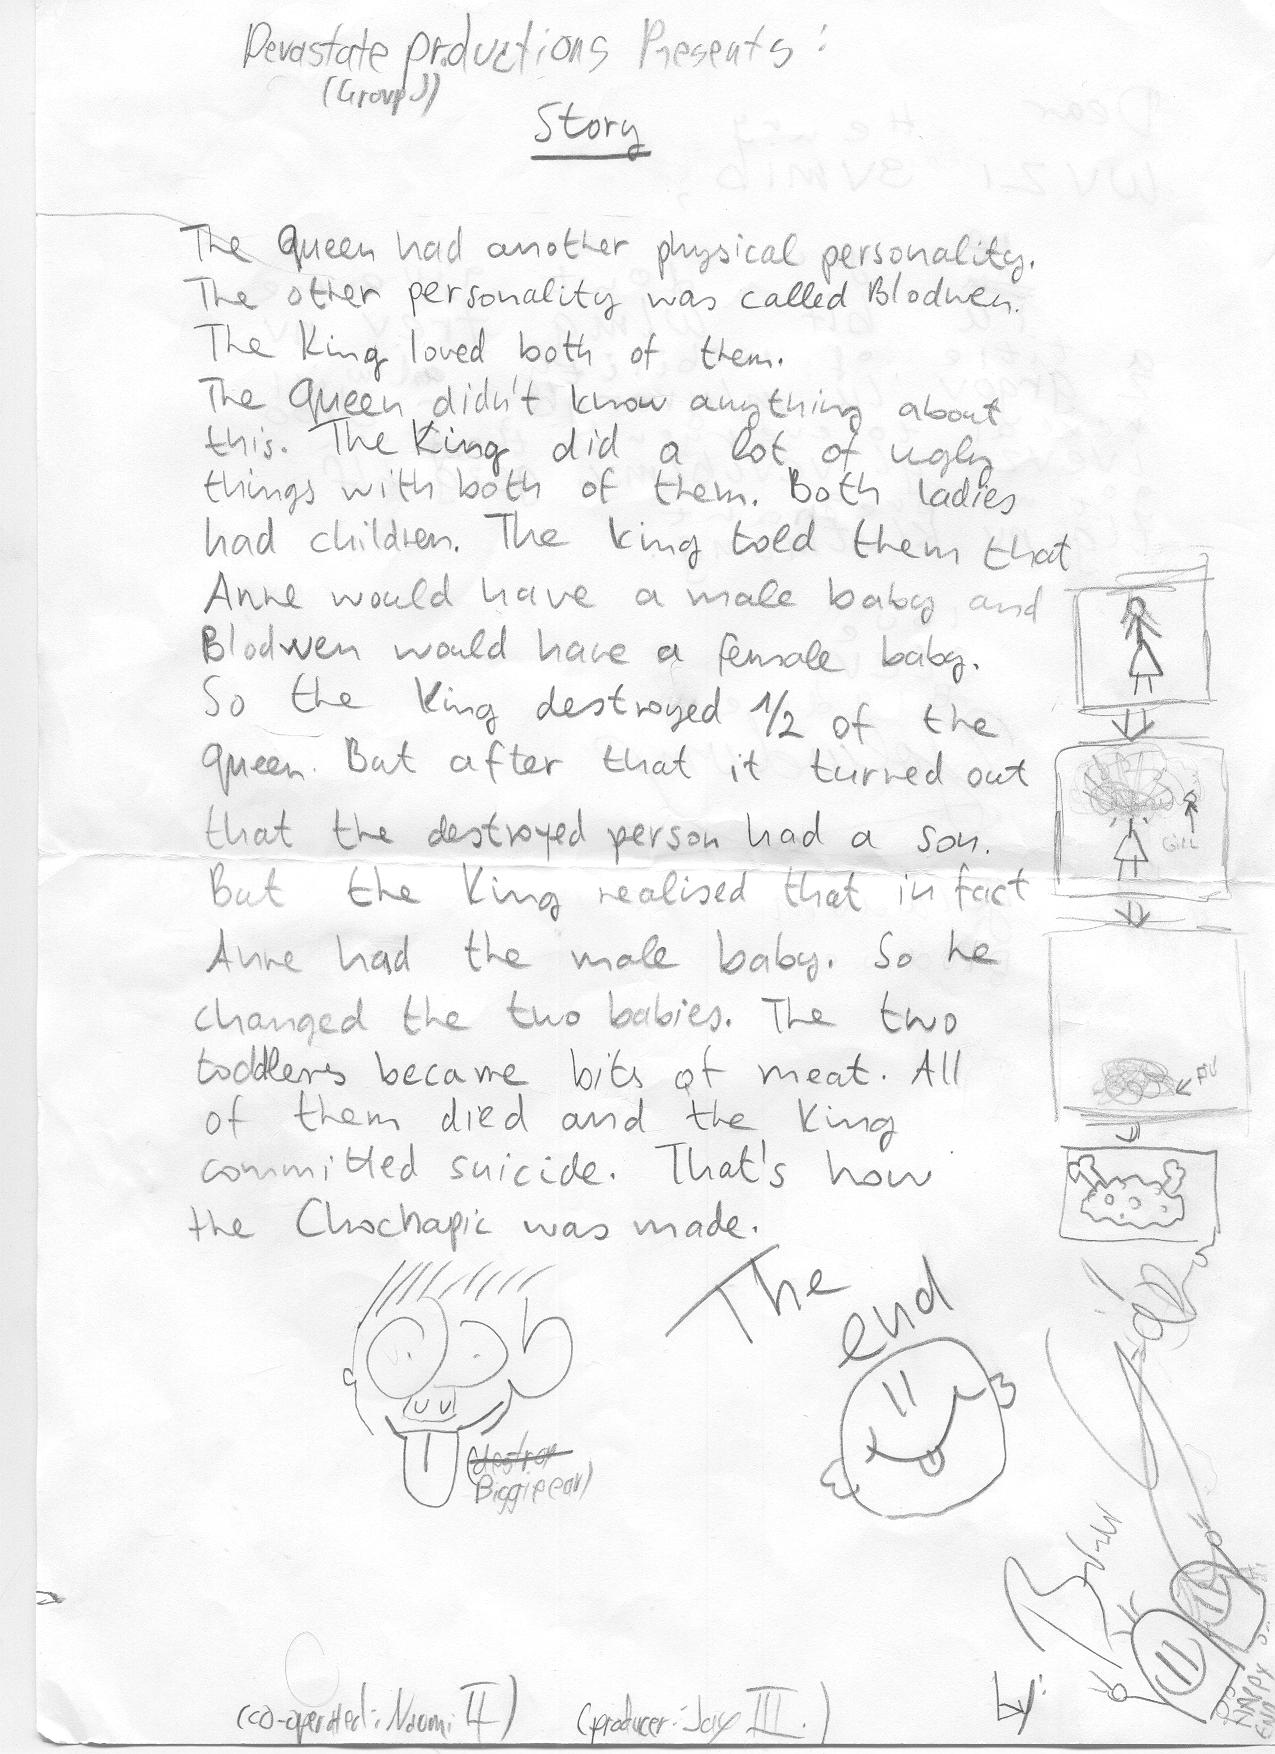 Devastate productions Presents:
(Group J)
Story
The Queen had another physical personality.
The other personality was called Blodwen.
The King loved both of them.
The Queen didn't know anything about
this. The King did a lot of ugly
things with both of them. Both ladies
had children. The King told them that
Anne would have a male baby and
Blodwen would have a female baby.
So the King destroyed 1/2 of the
queen. But after that it turned out
that the destroyed person had a son.
But the King realised that in fact
Anne had the male baby. So he
changed the two babies. The two
toddlers became bits of meat. All
of them died and the King
committed suicide. That's how
the Chochapic was made.
GIRL
The
end
by:
HAPPY
END
(co-operated: Naomi II)
(producer: Jay III.)